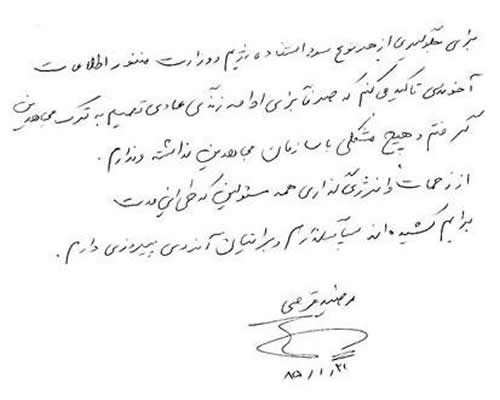 برای جلوگیری از هر نوع سوء استفاده رژیم و وزارت منفور اطلاعات
آخوندی تاکید می کنم که صرفاً برای ادامه زندگی عادی تصمیم به ترک مجاهدین
گرفتم و هیچ مشکلی با سازمان مجاهدین نداشته و ندارم.
از زحمات و انرژی گذاری همه مسئولین که طی این مدت
برایم کشیده اند سپاسگذارم و برایتان آرزوی پیروزی دارم.
قرصی
۸۵/۱/۲۱